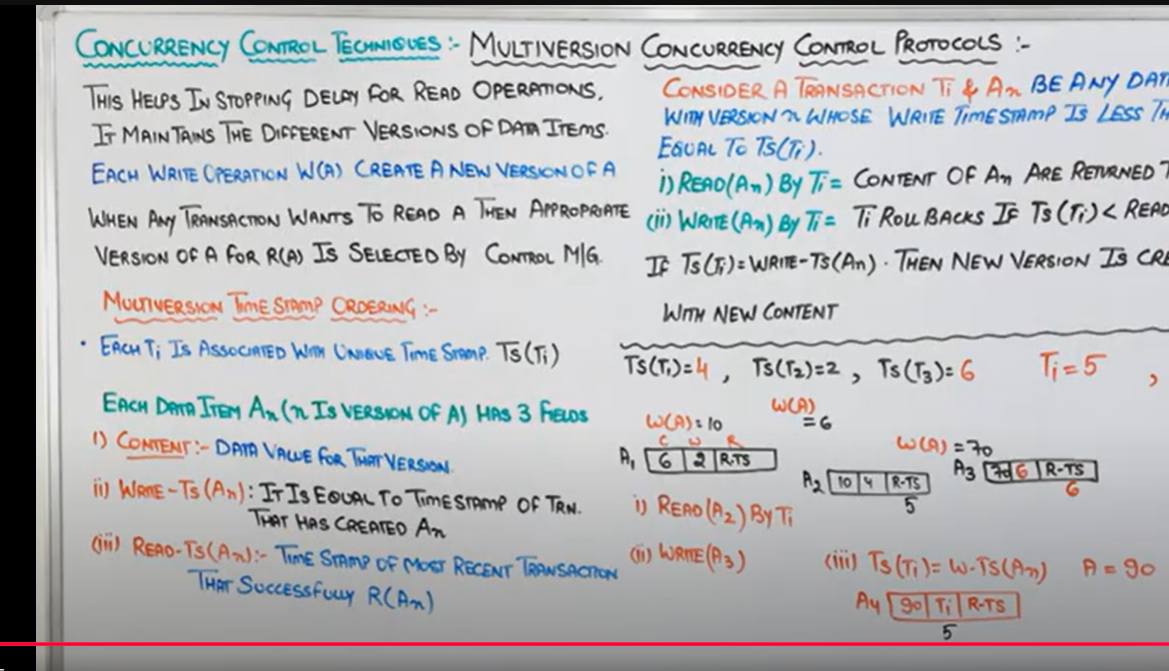 CONCURRENCY CONTROL TECHNIQUES :- MULTIVERSION CONCURRENCY CONTROL PROTOCOLS :-
THIS HELPS IN STOPPING DELAY FOR READ OPERATIONS.
IT MAINTAINS THE DIFFERENT VERSIONS OF DATA ITEMS.
EACH WRITE OPERATION W(A) CREATE A NEW VERSION OF A
WHEN ANY TRANSACTION WANTS TO READ A THEN APPROPRIATE
VERSION OF A FOR R(A) IS SELECTED BY CONTROL M|G.
MULTIVERSION TIME STAMP ORDERING :-
• EACH Ti IS ASSOCIATED WITH UNIQUE TIME STAMP. TS(Ti)
EACH DATA ITEM An (n IS VERSION OF A) HAS 3 FIELDS
i) CONTENT :- DATA VALUE FOR THAT VERSION.
ii) WRITE-TS(An) : IT IS EQUAL TO TIMESTAMP OF TRN.
THAT HAS CREATED An
(iii) READ-TS(An) :- TIME STAMP OF MOST RECENT TRANSACTION
THAT SUCCESSFULLY R(An)
CONSIDER A TRANSACTION Ti & An BE ANY DAT
WITH VERSION n WHOSE WRITE TIMESTAMP IS LESS TH
EQUAL TO TS(Ti).
i) READ(An) BY Ti = CONTENT OF An ARE RETURNED T
(ii) WRITE(An) BY Ti = Ti ROLL BACKS IF TS(Ti) < READ
IF TS(Ti) = WRITE-TS(An). THEN NEW VERSION IS CRE
WITH NEW CONTENT
TS(T1)=4 , TS(T2)=2 , TS(T3)=6 Ti=5 ,
W(A)=10 W(A)
=6
W(A)=70
C W R
A1 6 2 R-TS
A2 10 4 R-TS
5
A3 70 6 R-TS
6
i) READ(A2) BY Ti
(ii) WRITE(A3)
(iii) TS(Ti) = W-TS(An) A = 90
A4 90 Ti R-TS
5